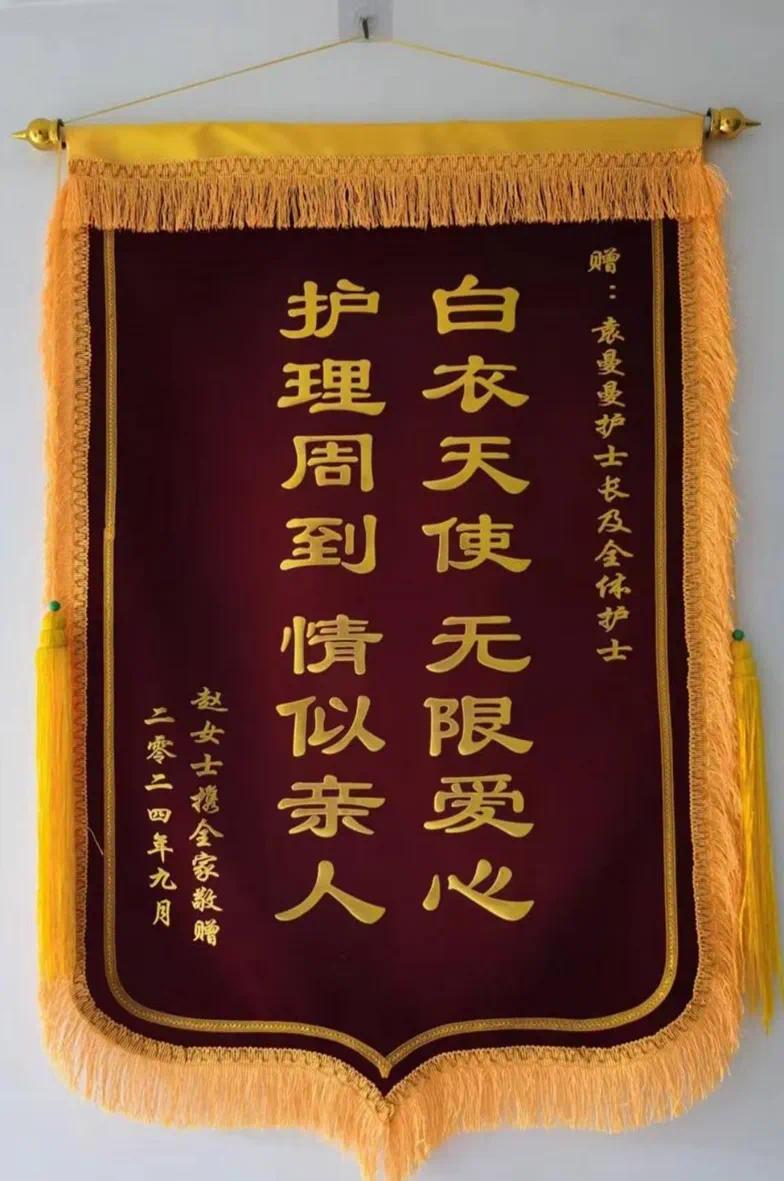 赠：袁曼曼护士长及全体护士
白衣天使 无限爱心
护理周到 情似亲人
赵女士携全家敬赠
二零二四年九月